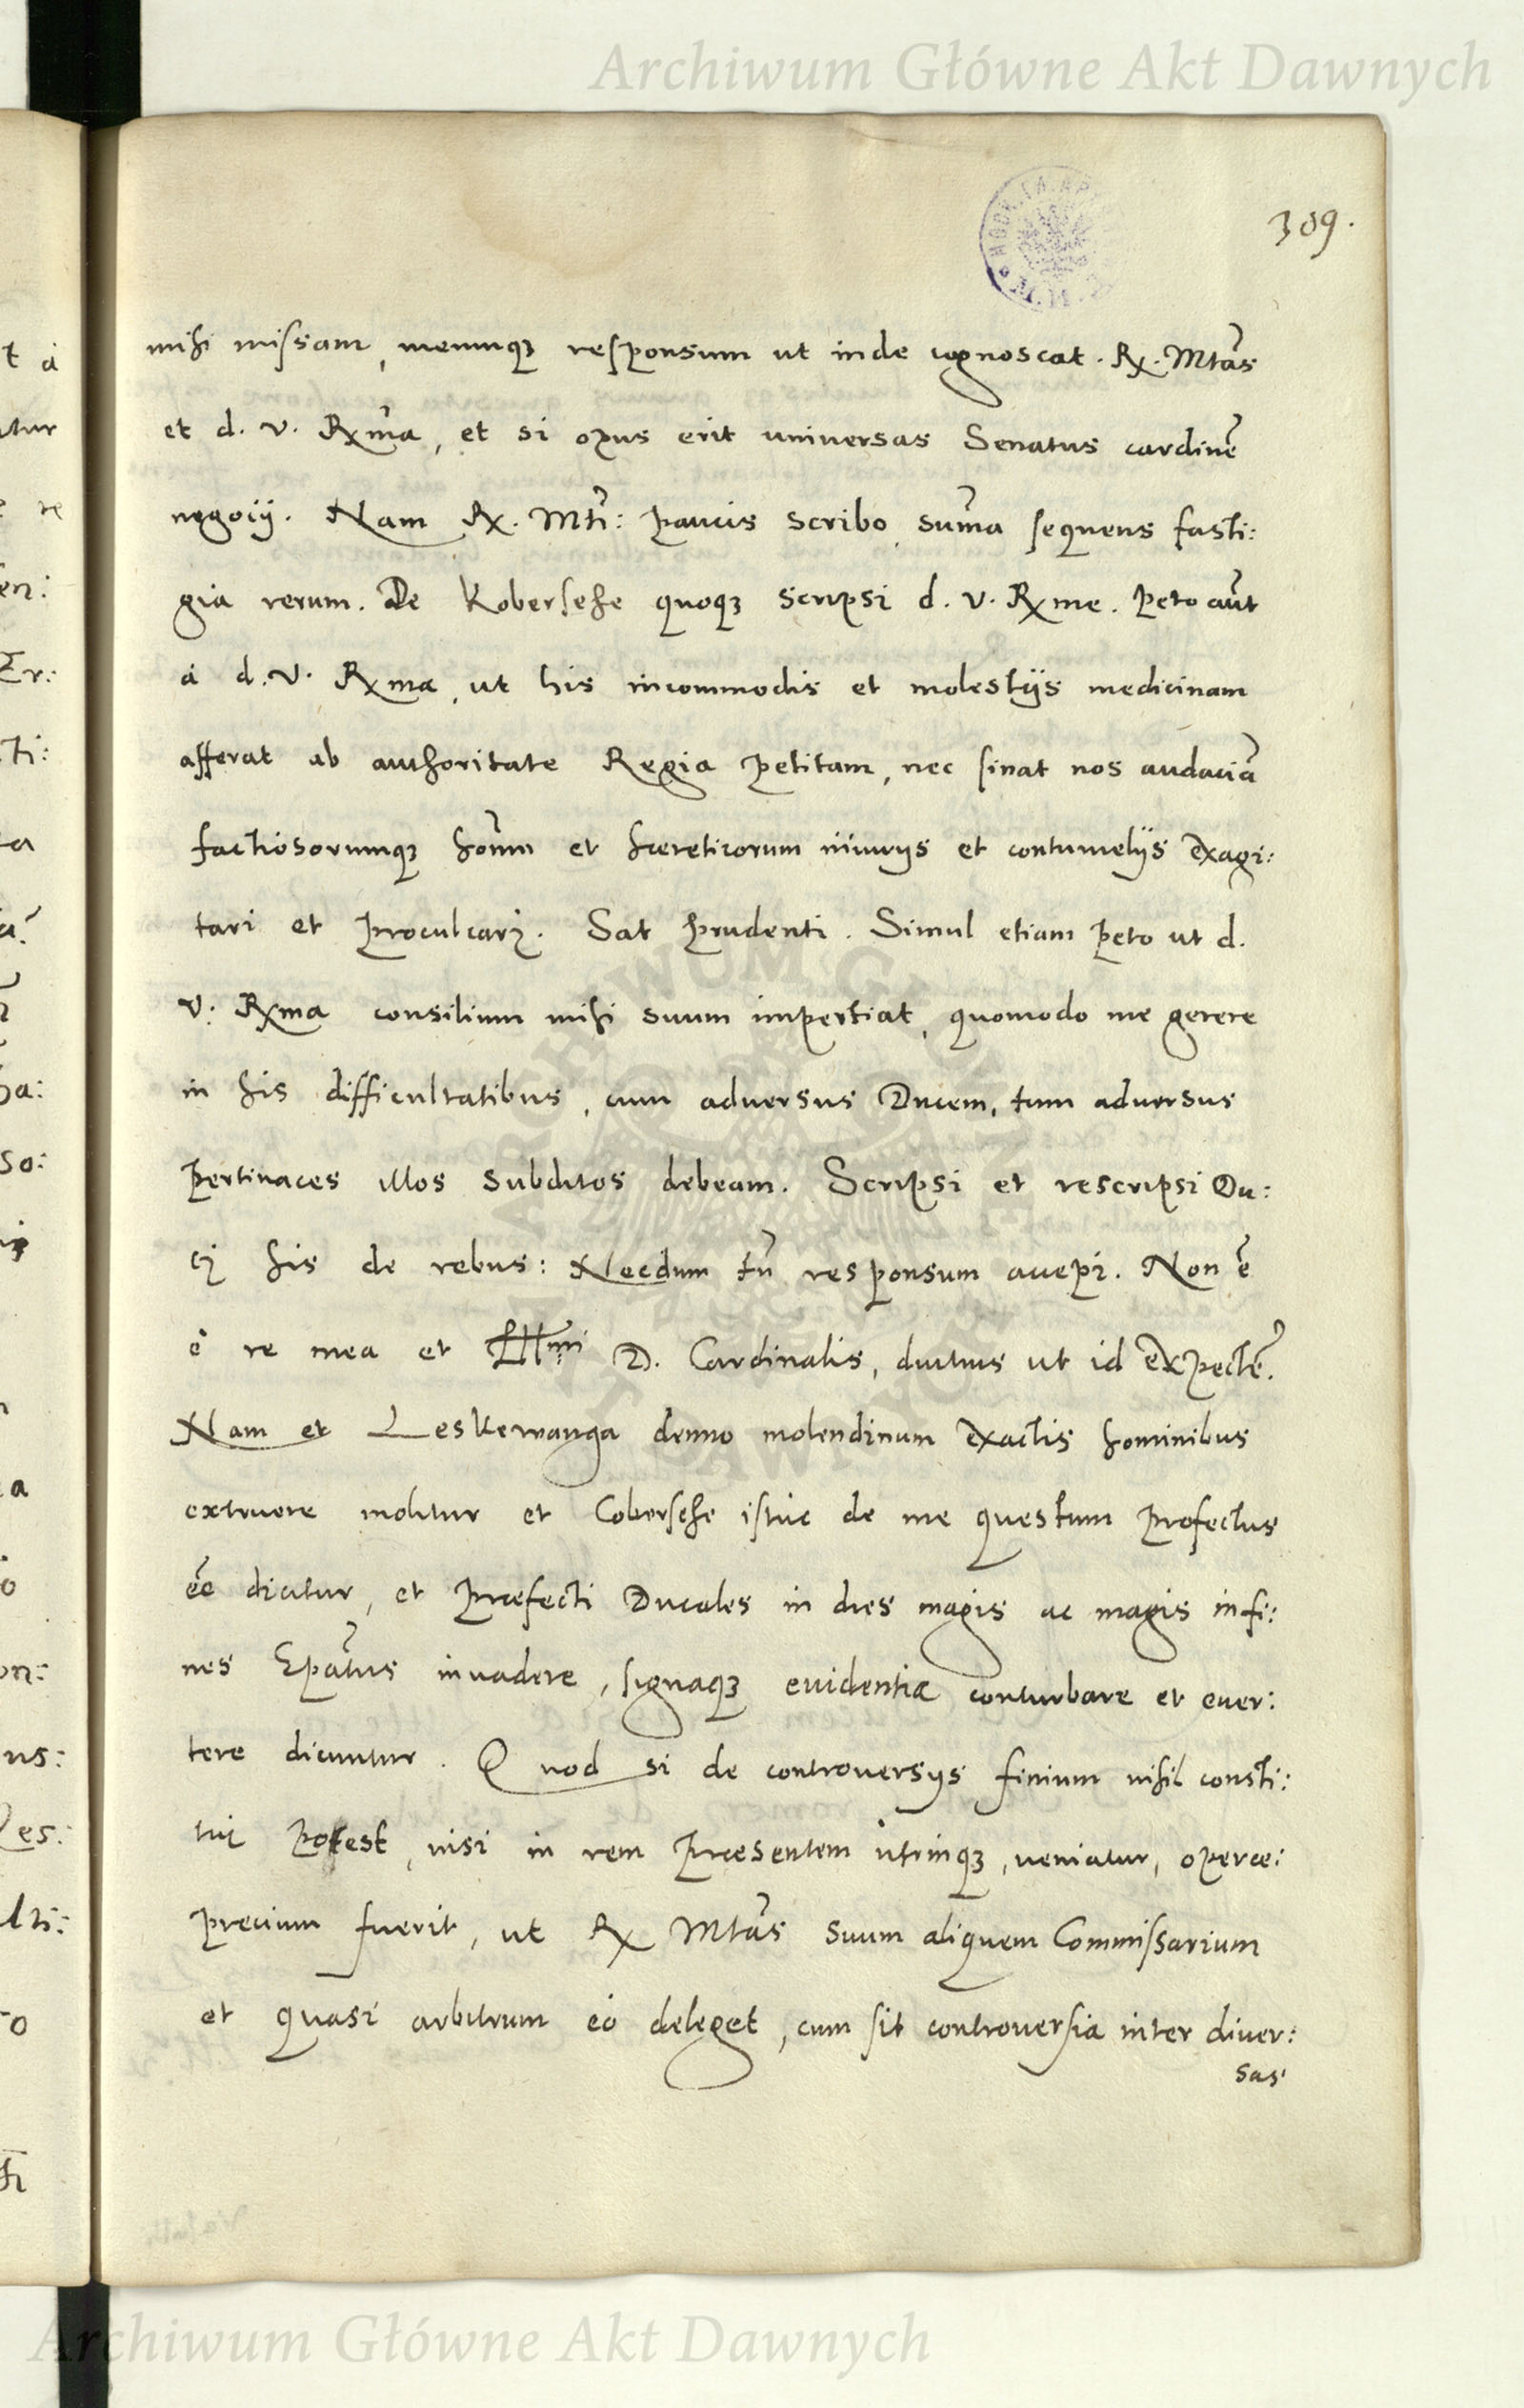 Archiwum Główne Akt Dawnych
309.
mihi missam, meumq3 responsum ut inde cognoscat. Rx. Mtãs
et d. v. Rxm̃a, et si opus erit universas Senatus cardinẽ
negocij. Nam Rx. Mtĩ: paucis scribo, sum̃a sequens fasti:
gia rerum. De Kobersehe quoq3 scripsi d. v. Rxme. Peto aũt
à d. v. Rxma, ut his incommodis et molestijs medicinam
afferat ab authoritate Regia petitam, nec sinat nos audaciã
factiosorumq3 hoĩm et hæreticorum iniurijs et contumelijs exagi:
tari et proculcari. Sat prudenti. Simul etiam peto ut d.
v. Rxma consilium mihi suum impertiat, quomodo me gerere
in his difficultatibus, cum adversus Ducem, tum adversus
pertinaces illos subditos debeam. Scripsi et rescripsi Du:
ci his de rebus: Necdum tñ responsum accepi. Non ẽ
è re mea et Illmi D. Cardinalis, diutius ut id expectẽ.
Nam et Leskewanga denuo molendinum exactis hominibus
extruere molitur et Cobersehe istuc de me questum profectus
eẽ dicitur, et Præfecti Ducales in dies magis ac magis in fi:
nes Epãtus invadere, signaq3 evidentia conturbare et ever:
tere dicuntur. Quod si de controversijs finium nihil consti:
tui potest, nisi in rem præsentem utrinq3, veniatur, operæ:
precium fuerit, ut Rx Mtãs suum aliquem Commissarium
et quasi arbitrum eò deleget, cum sit controversia inter diver:
sas
Archiwum Główne Akt Dawnych